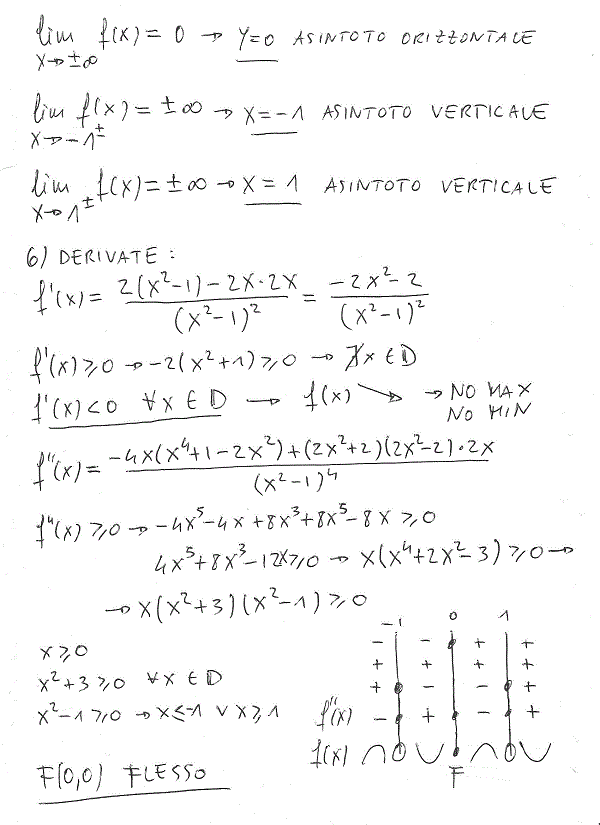 lim f(x) = 0 → y=0 ASINTOTO ORIZZONTALE
x→±∞
lim f(x) = ±∞ → x=-1 ASINTOTO VERTICALE
x→-1±
lim f(x) = ±∞ → x=1 ASINTOTO VERTICALE
x→1±
6) DERIVATE:
f'(x) = 2(x²-1)-2x·2x / (x²-1)² = -2x²-2 / (x²-1)²
f'(x)≥0 → -2(x²+1)≥0 → ∄x∈D
f'(x)<0 ∀x∈D → f(x) ↘ → NO MAX
NO MIN
f''(x) = -4x(x⁴+1-2x²)+(2x²+2)(2x²-2)·2x / (x²-1)⁴
f''(x)≥0 → -4x⁵-4x+8x³+8x⁵-8x≥0
4x⁵+8x³-12x≥0 → x(x⁴+2x²-3)≥0 →
→ x(x²+3)(x²-1)≥0
-1 0 1
x≥0 - - + +
x²+3≥0 ∀x∈D + + + +
x²-1≥0 → x≤-1 ∨ x≥1 + - - +
f''(x) - + - +
f(x) ∩ ∪ ∩ ∪
F
F(0,0) FLESSO